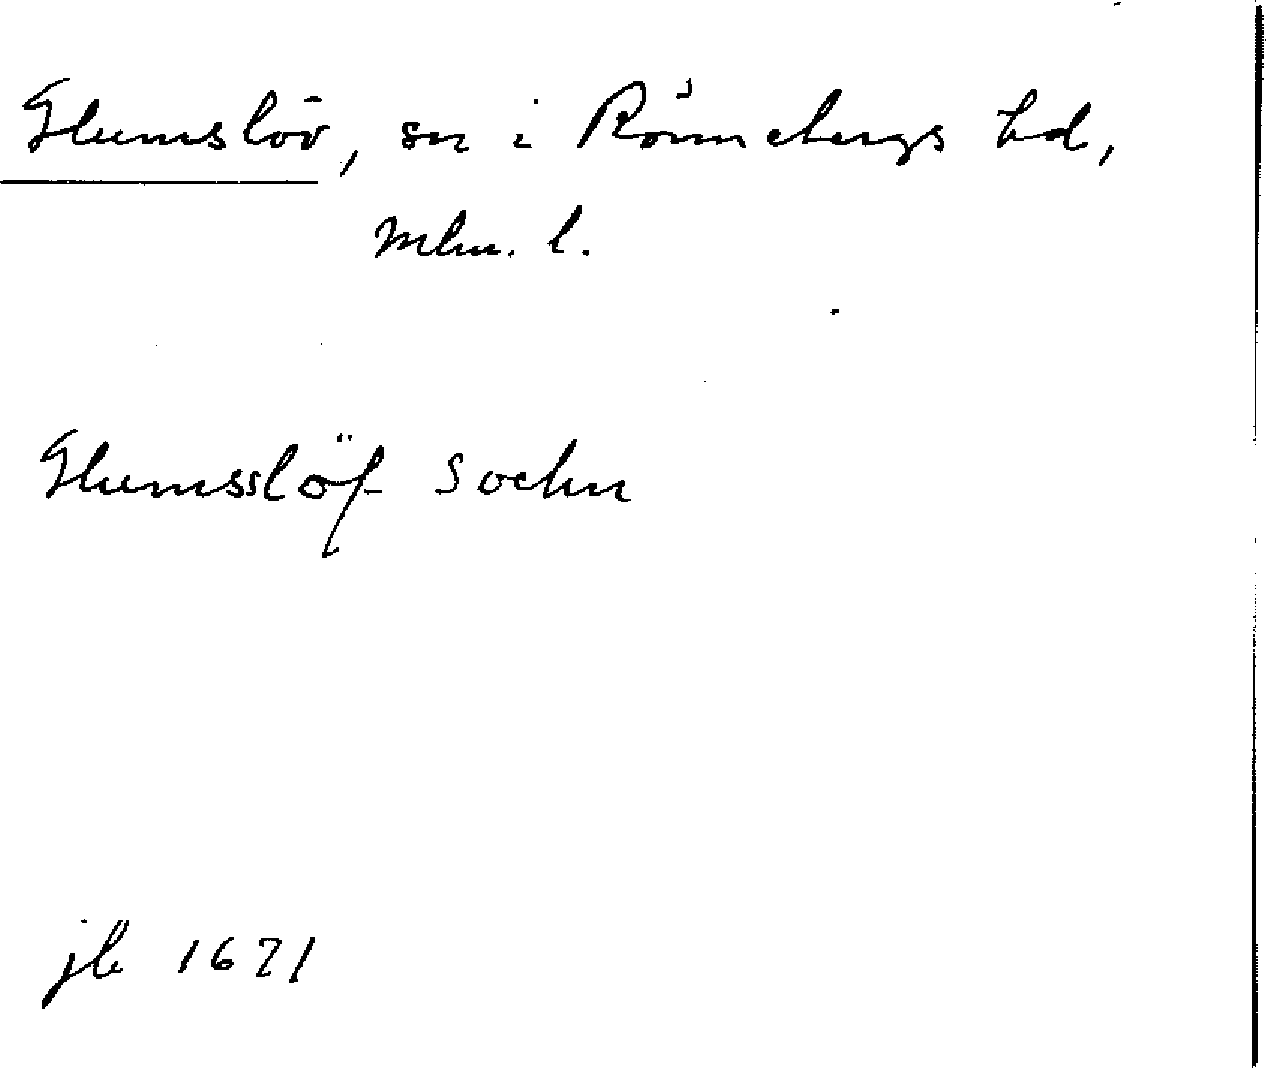 Glumslöv, sn i Rönnebergs hd,
Mlm. l.
Glumsslöf Sochn
jb 1671